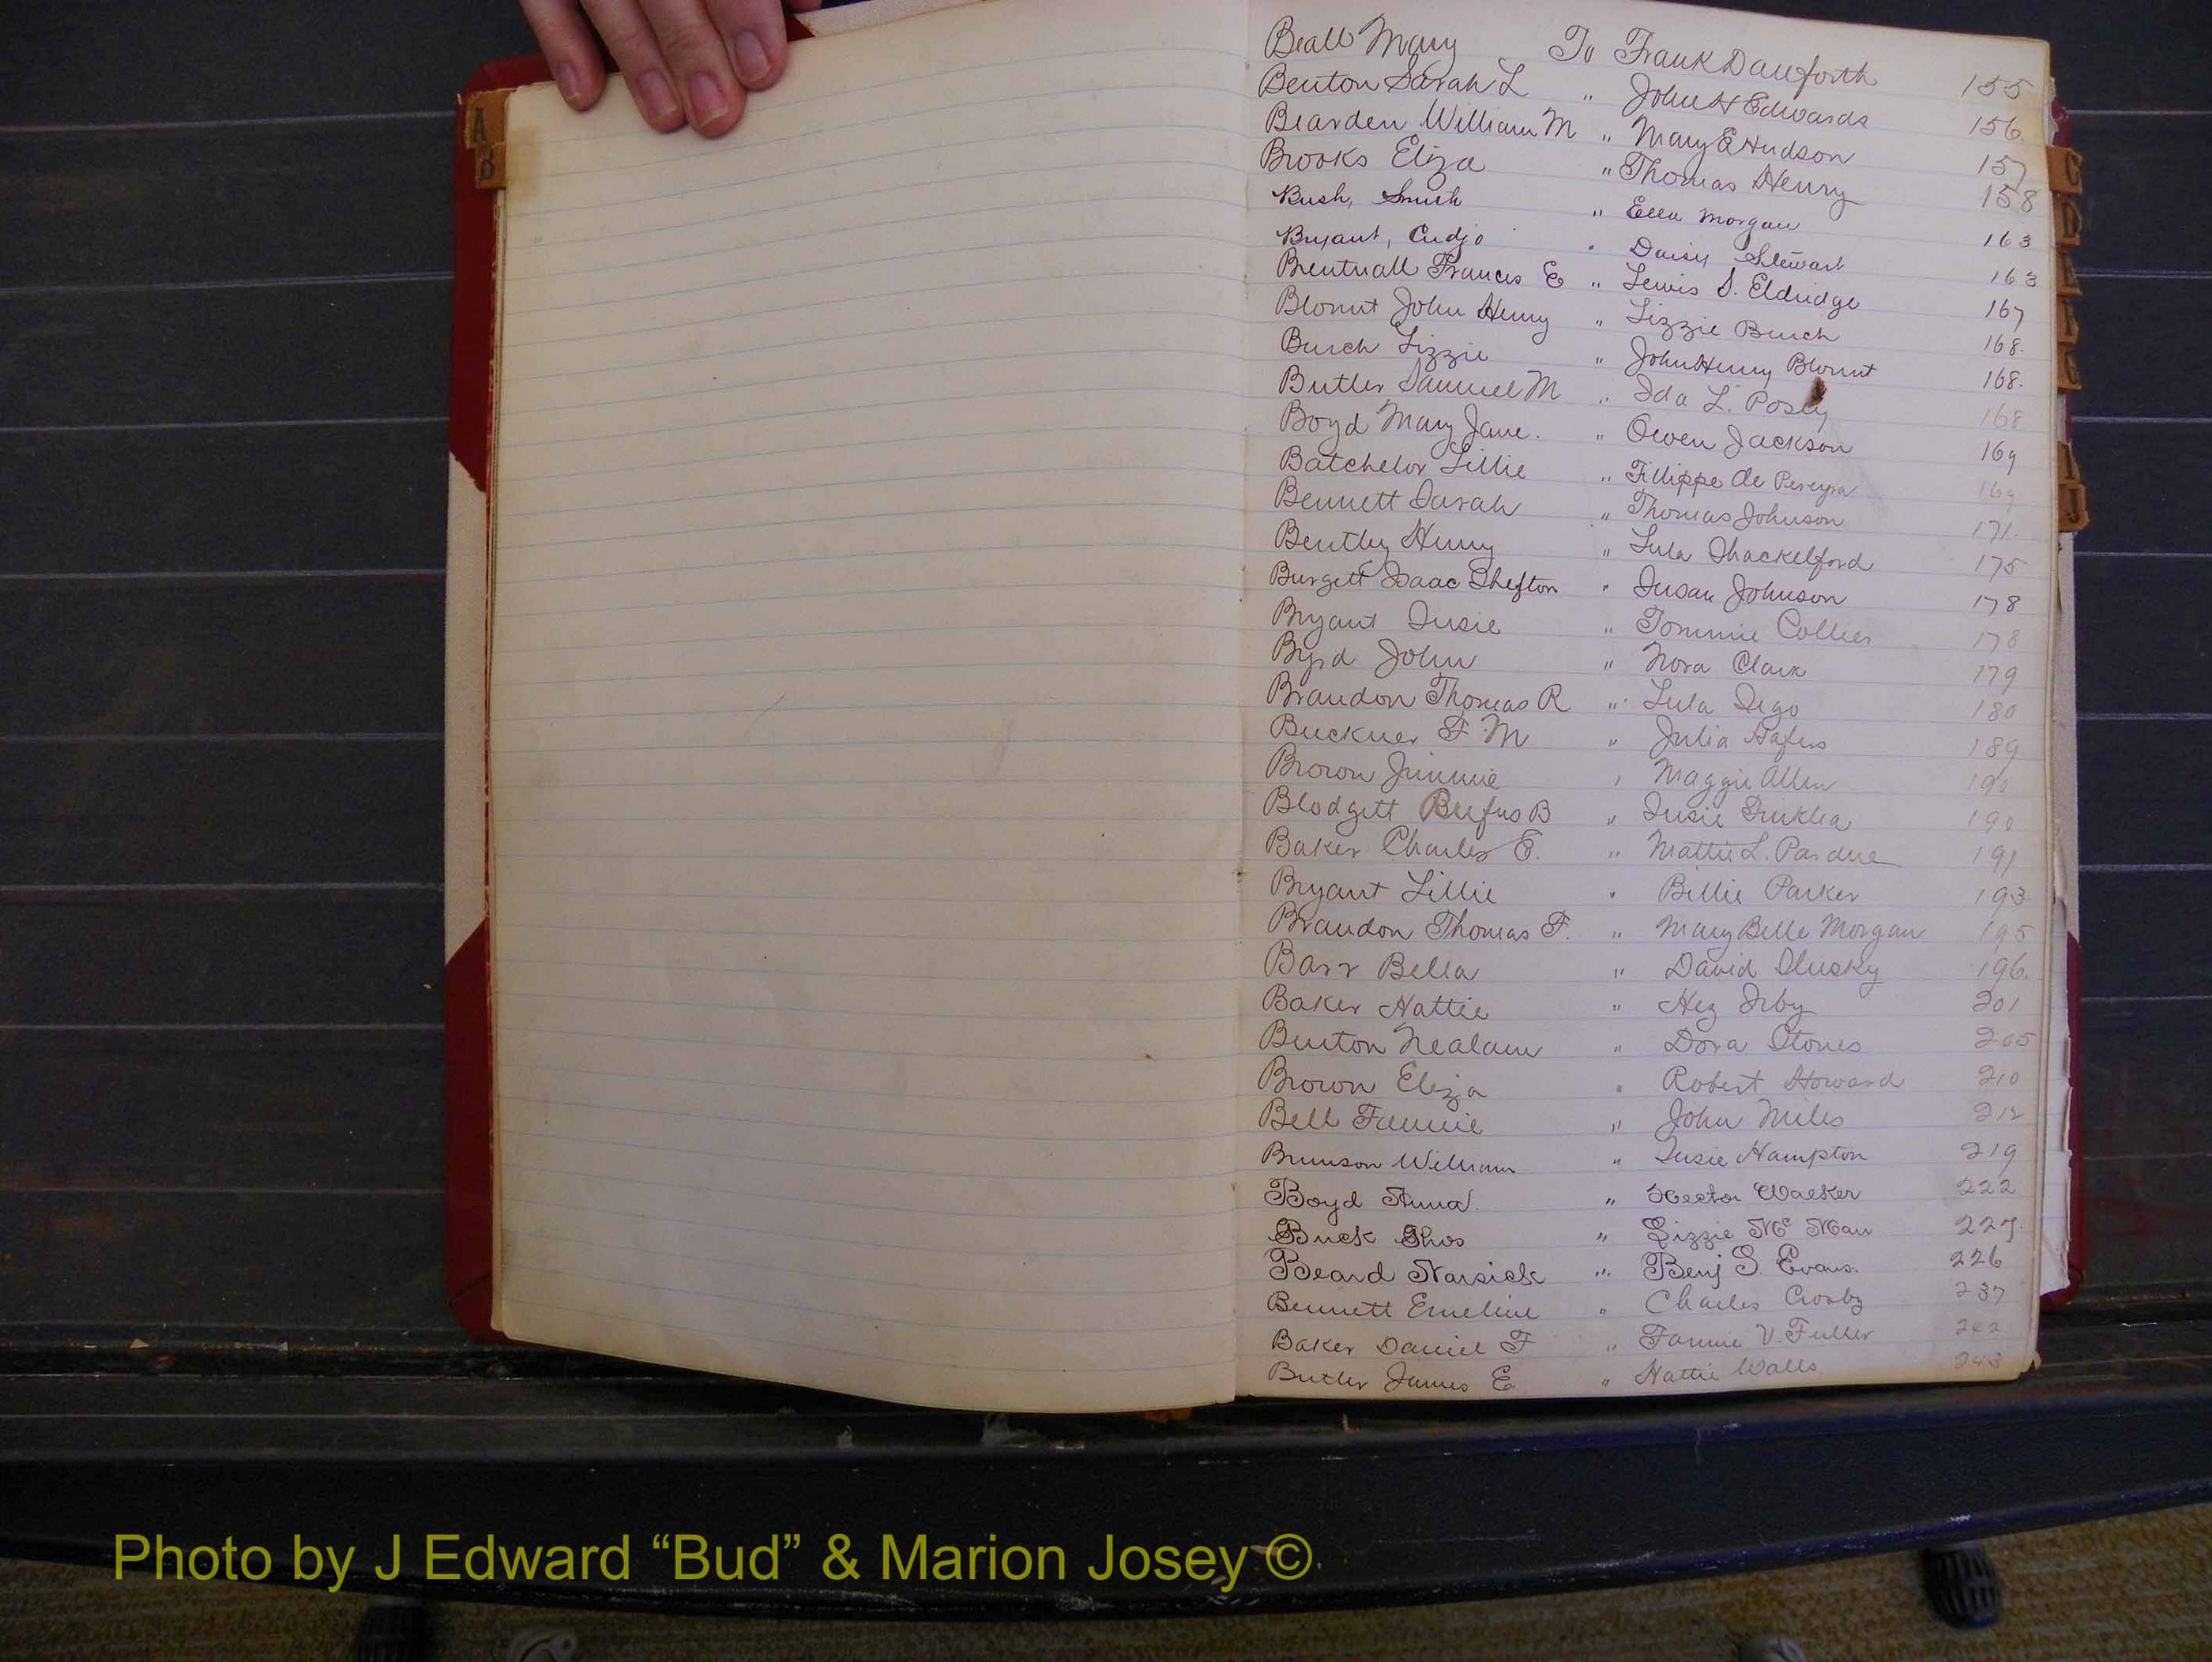 A
B
Beall Mary To Frank Danforth 155
Benton Sarah L " John H Edwards 156
Bearden William M " Mary E Hudson 157
Brooks Eliza " Thomas Henry 158
Bush, Smith " Ella Morgan 163
Bryant, Cudjo " Daisy Stewart 163
Brentnall Frances E " Lewis S. Eldridge 167
Blount John Henry " Lizzie Burch 168.
Burch Lizzie " John Henry Blount 168.
Butler Samuel M " Ida L. Posey 168
Boyd Mary Jane. " Owen Jackson 169
Batchelor Lillie " Fillippe de Pereyra 169
Bennett Sarah " Thomas Johnson 171.
Bentley Henry " Lula Shackelford 175
Burgett Isaac Shefton " Susan Johnson 178
Bryant Susie " Tommie Collier 178
Byrd John " Nora Clark 179
Brandon Thomas R " Lula Sego 180
Buckner F M " Julia 189
Brown Jimmie " Maggie Allen 190
Blodgett Rufus B " Susie 190
Baker Charles E. " Mattie L. Pardue 191
Bryant Lillie " Billie Parker 193
Brandon Thomas F. " Mary Belle Morgan 195
Barr Bella " David Slusky 196.
Baker Hattie " Hez Irby 201
Burton Nealam " Dora Stones 205
Brown Eliza " Robert Howard 210
Bell Fannie " John Miles 212
Brunson William " Susie Hampton 219
Boyd Anna. " Hector Walker 222
Buck Thos " Lizzie Mc Nair 227.
Beard Narsick " Benj S. Evans. 226
Bennett Emeline " Charles Crosby 237
Baker Daniel F " Fannie V. Fuller 242
Butler James E " Hattie Walls. 243
C
D
E
F
G
I
J
Photo by J Edward “Bud” & Marion Josey ©